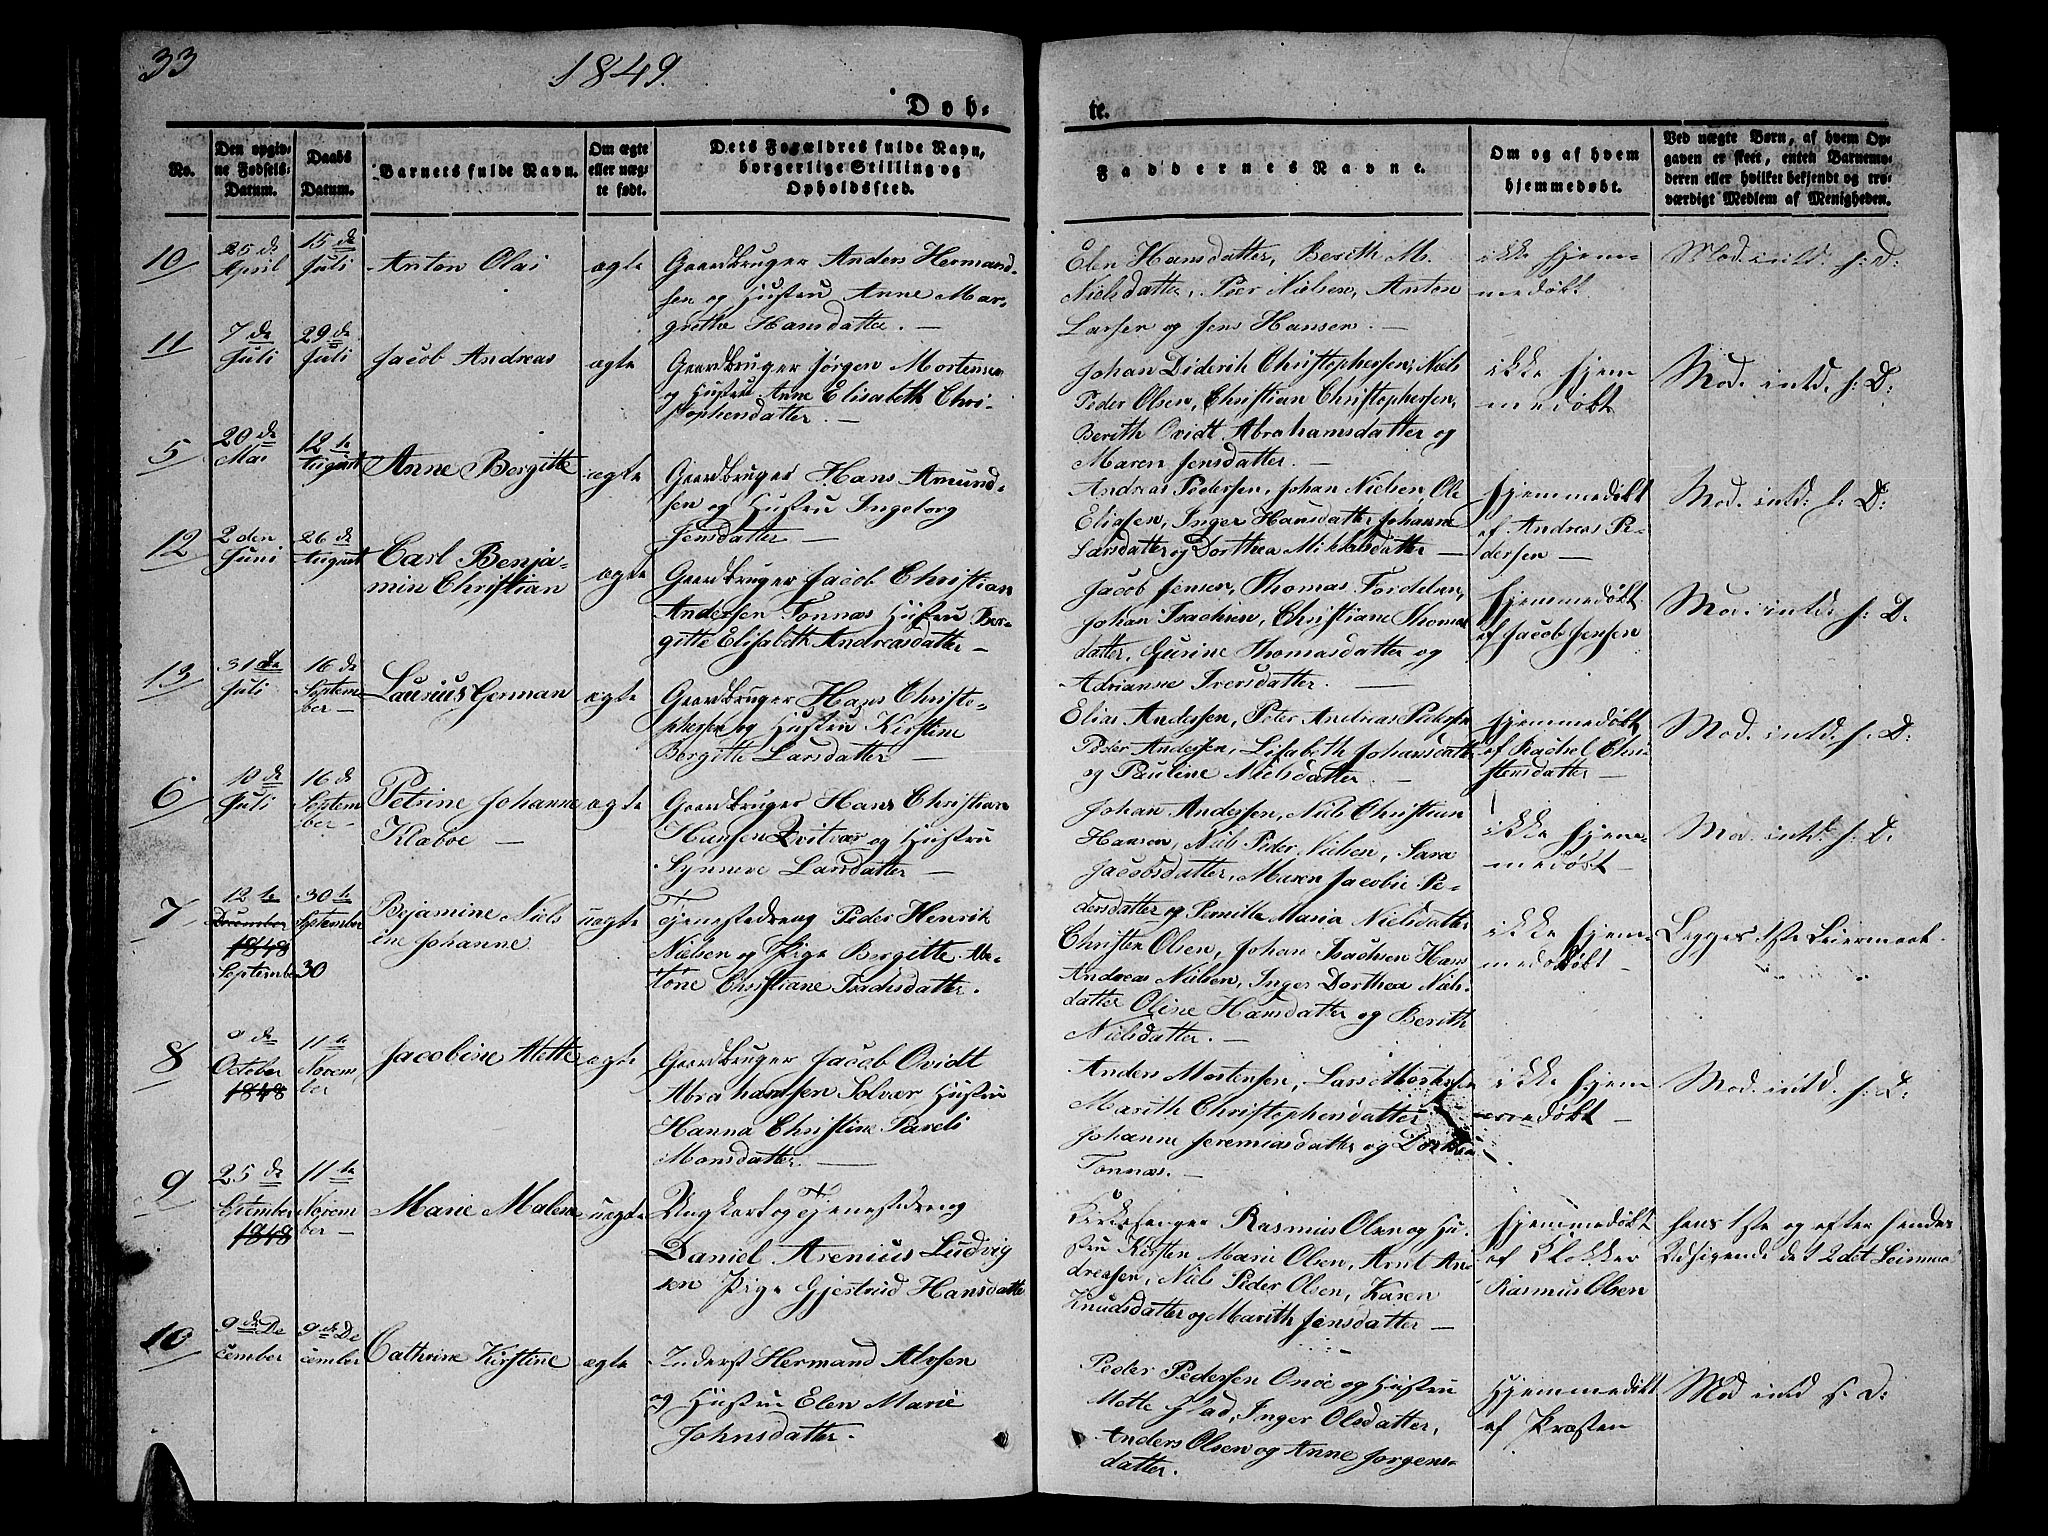 33
1849.
Døb-
te.
No.
Den opgiv-
ne Fødsels-
Datum.
Daabs
Datum.
Barnets fulde Navn.
Om ægte
eller uæg-
te født.
Dets Forældres fulde Navn,
borgerlige Stilling og
Opholdssted.
Faddernes Navne.
Om og af hvem
hjemmedøbt.
Ved uægte Børn, af hvem Op-
gaven er skeet, enten Barnemo-
deren eller hvilket bekjendt og tro-
værdigt Medlem af Menigheden.
10
25 de
April
15 de
Juli
Anton Olai
ægte
Gaardbruger Anders Hermand-
sen og Hustru Anne Mar-
grethe Hansdatter. —
Elen Hansdatter, Berith M.
Nielsdatter, Peer Nielsen, Anton
Larsen og Jens Hansen. —
ikke hjem-
medøbt
Mod. intd. f: D:
11
7 de
Juli
29 de
Juli
Jacob Andreas
ægte
Gaardbruger Jørgen Mortensen
og Hustru Anne Elisabeth Chri-
stophersdatter. —
Johan Diderik Christophersen, Niels
Peder Olsen, Christian Christophersen,
Berith Ovidt Abrahamsdatter og
Maren Jensdatter. —
ikke hjem
medøbt
Mod. intd. f: D:
5
20 de
Mai
12 te
August
Anne Bergitte
ægte
Gaardbruger Hans Amund-
sen og Hustru Ingeborg
Jensdatter —
Andreas Pedersen, Johan Nielsen, Ole
Eliasen, Inger Hansdatter, Johanne
Larsdatter og Dorthea Nielsdatter —
hjemmedøbt
af Andreas Pe-
dersen —
Mod. intd: f: D:
12
2 den
Juni
26 de
August
Carl Benja-
min Christian
ægte
Gaardbruger Jacob Christian
Andersen Tonnæs Hustru Ber-
gitte Elisabeth Andreasdatter —
Jacob Jensen, Thomas Fordelsen,
Johan Isachsen, Christiane Thomas
datter, Gurine Thomasdatter og
Adrianne Iversdatter. —
hjemmedøbt
af Jacob Jensen
Mod. intd. f: D.
13
31 de
Juli
16 de
Septem-
ber —
Laurius German
ægte
Gaardbruger Hans Christo-
phersen og Hustru Kirstine
Bergitte Larsdatter —
Elias Andersen, Peter Andreas Pedersen
Peder Andersen, Lisabeth Johansdatter
og Pauline Nielsdatter —
hjemmedøbt
af Rachel Chri-
stensdatter —
Mod. intd. f: D:
6
10 de
Juli
16 de
Septem
ber —
Petrine Johanne
Klæboe —
ægte
Gaardbruger Hans Christian
Hansen Qvitvær og Hustru
Synneve Larsdatter —
Johan Andersen, Niels Christian
Hansen, Niels Peder Nielsen, Sara
Jacobsdatter, Maren Jacobie Pe-
dersdatter og Pernille Maria Nielsdatter
ikke hjem-
medøbt —
Mod. intd. f: D:
7
12 te
December
1848
September
30 te
September
30
Bejamine Niels
ine Johanne
uægte
Tjenestedreng Peder Henrik
Nielsen og Pige Bergitte An-
tone Christiane Isachsdatter.
Christen Olsen, Johan Isachsen Hans
Andreas Nielsen, Inger Dorthea Niels-
datter Oline Hansdatter og Berith
Nielsdatter. —
ikke hjem-
medøbt —
Begges 1ste Leiermaal.
8
de
October
1848
11 te
Novem
ber
Jacobine Alette
ægte
Gaardbruger Jacob Ovidt
Abrahamsen Solvær Hustru
Hanna Christine Pareli
Monsdatter —
Anders Mortensen, Lars Mortensen
Marith Christophersdatter
Johanne Jeremiasdatter og Dorthea
Tonnæs. —
ikke hjem
medøbt —
Mod. intd. f: D:
9
25 de
September
1848
11 te
Novem
ber —
Marie Malene
uægte
Ungkarl og Tjenestedreng
Daniel Arenius Ludvig
sen Pige Gjertrud Hansdatter
Kirkesanger Rasmus Olsen og Hu-
stru Kirsten Marie Olsen, Arnt An
dreasen, Niels Peder Olsen, Karen
Knudsdatter og Marith Jensdatter —
hjemmedøbt
af Klokker
Rasmus Olsen
hans 1ste og efter hendes
Udsigende det 2det Leiermaal
10
9 de De
cember
9 de De
cember
Cathrine Kirstine
ægte
Inderst Hermand Alvsen
og Hustru Elen Marie
Johnsdatter.
Peder Pedersen Onøe og Hustru
Mette Flad, Inger Olsdatter,
Anders Olsen og Anne Jørgens-
datter.
Hjemmedøbt
af Præsten
Mod intd f. D: